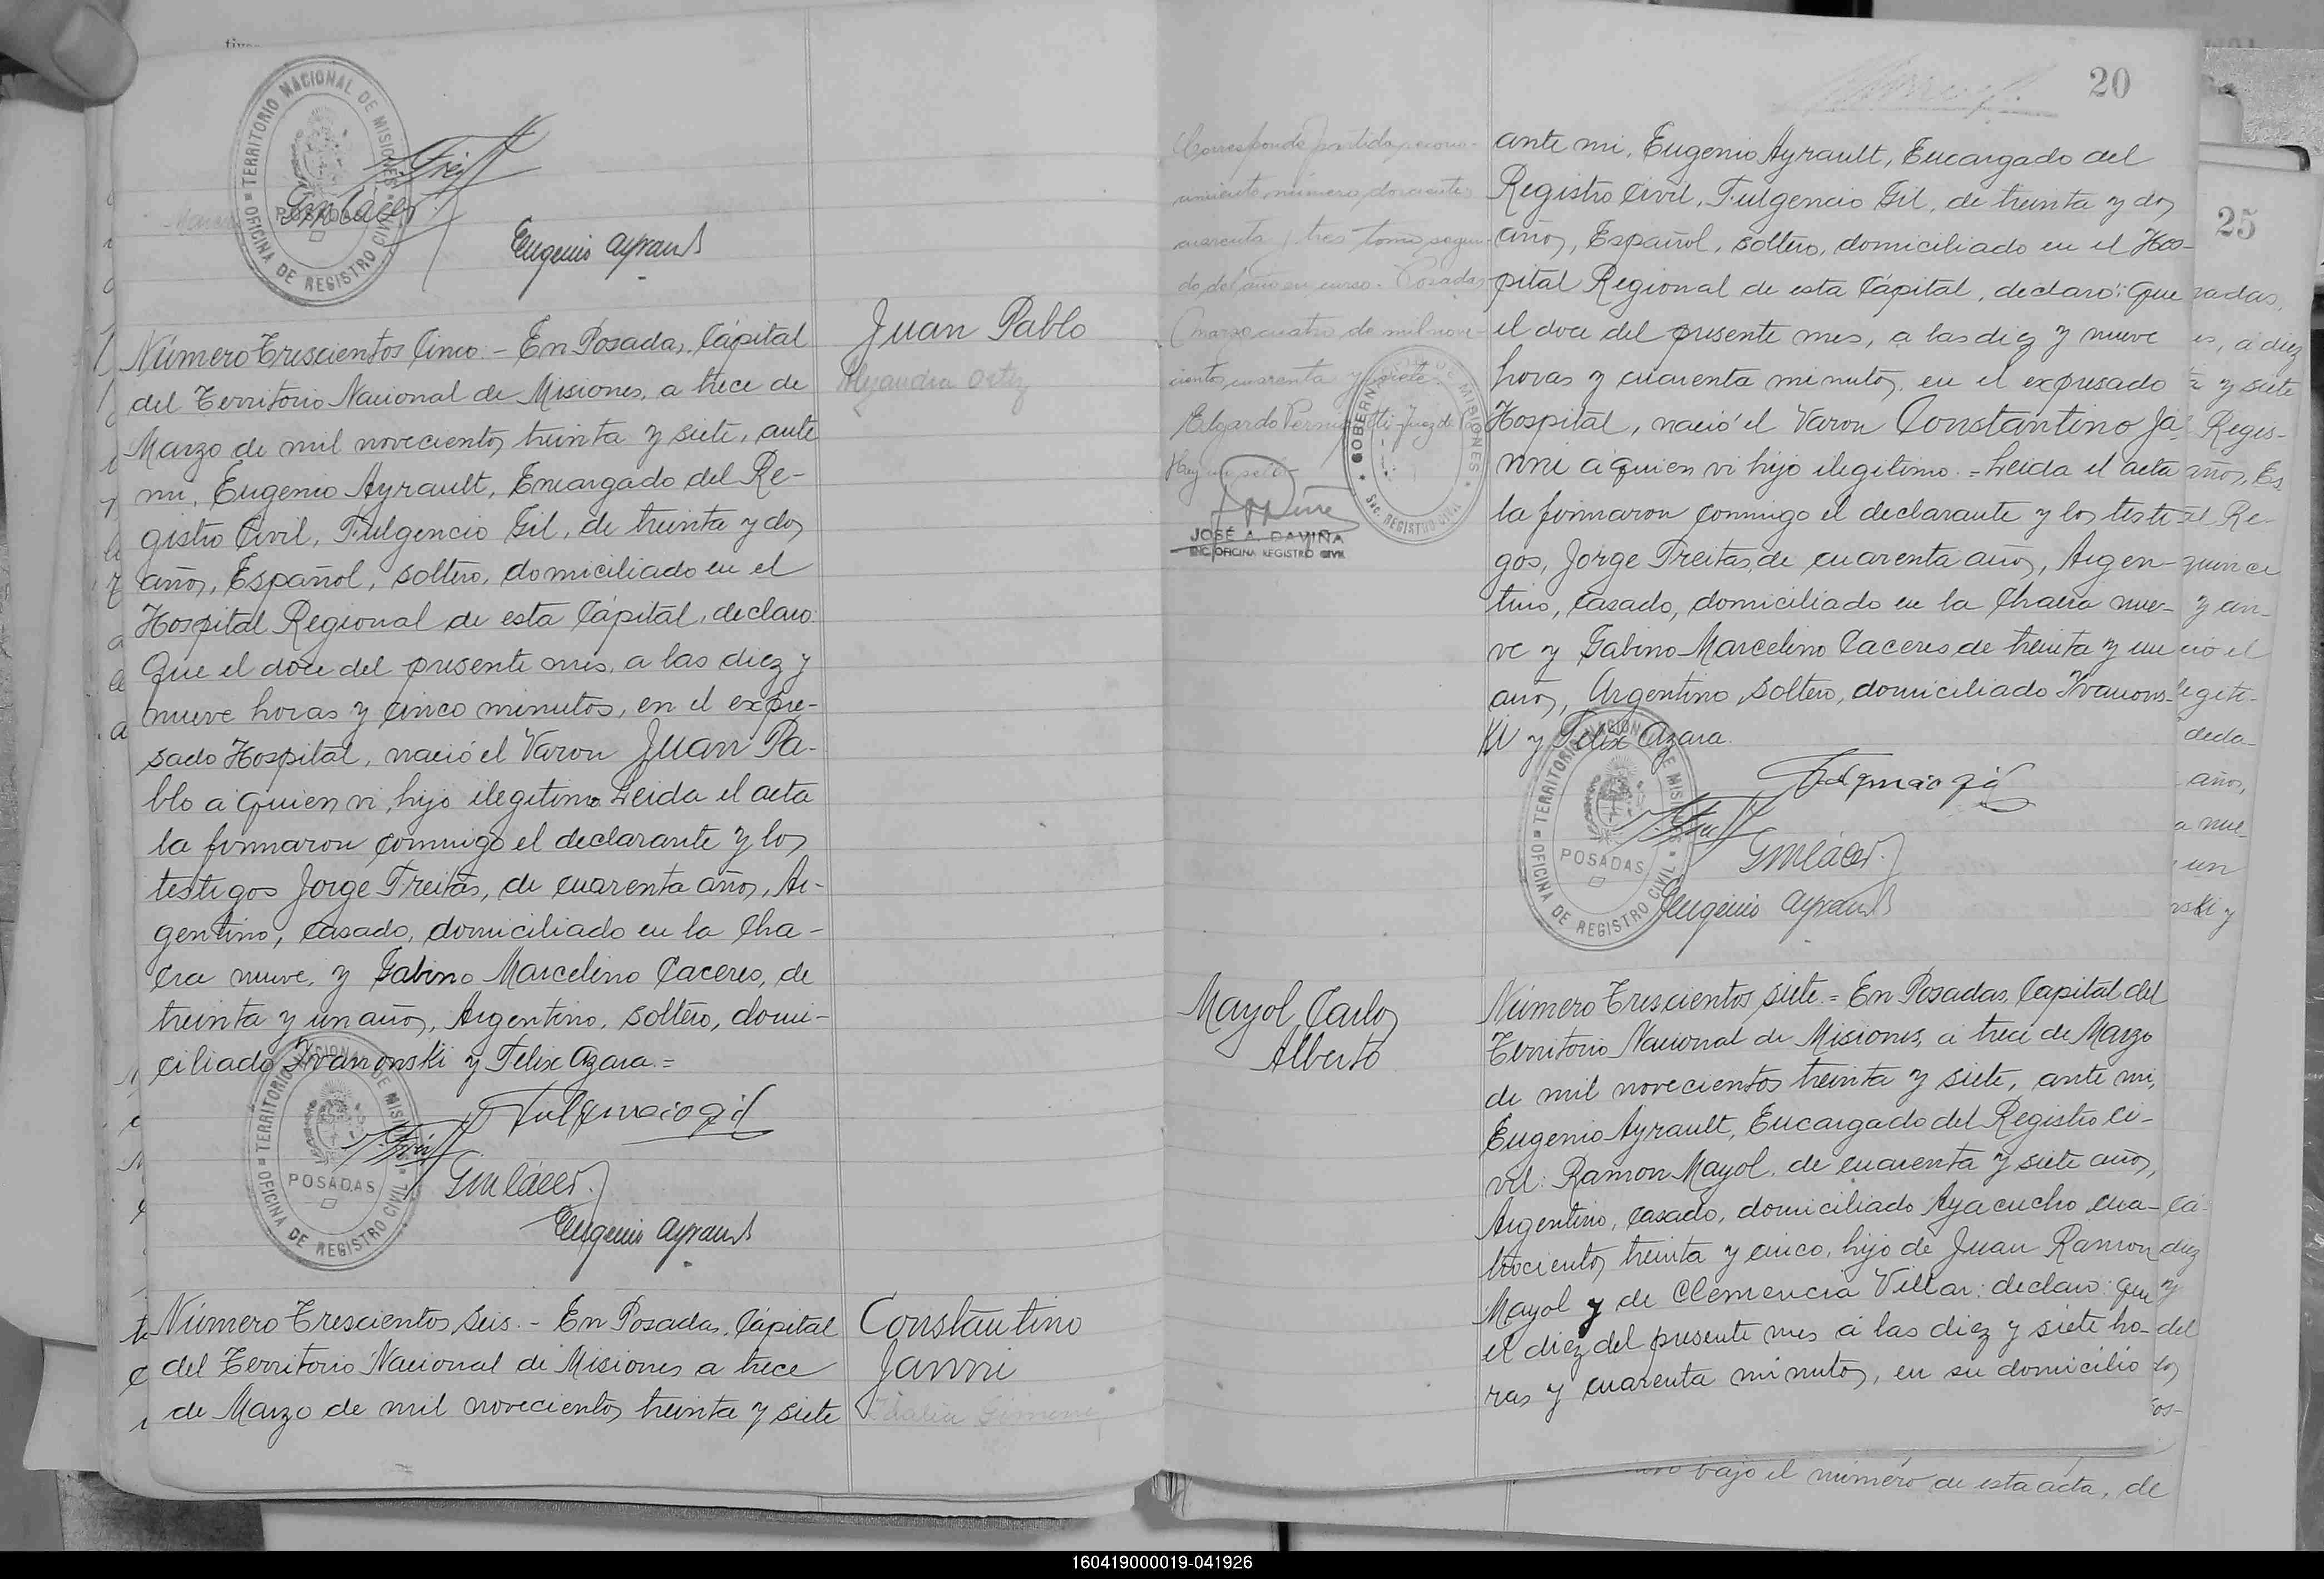 TERRITORIO NACIONAL DE MISIONES
POSADAS
OFICINA DE REGISTRO CIVIL
Eugenio Ayrault
Juan Pablo
Alejandra Ortiz
Número Trescientos Cinco.- En Posadas, Cápital
del Territorio Nacional de Misiones, a trece de
Marzo de mil novecientos treinta y siete, ante
mi, Eugenio Ayrault, Encargado del Re-
gistro Civil, Fulgencio Gil, de treinta y dos
años, Español, soltero, domiciliado en el
Hospital Regional de esta Cápital, declaro:
Que el doce del presente mes, a las diez y
nueve horas y cinco minutos, en el expre-
sado Hospital, nació el Varon Juan Pa-
blo a quien vi, hijo ilegitimo Leida el acta
la firmaron conmigo el declarante y los
testigos Jorge Freitas, de cuarenta años, Ar-
gentino, casado, domiciliado en la Cha-
cra nueve, y Gabino Marcelino Caceres, de
treinta y un años, Argentino, soltero, domi-
ciliado Ivanonski y Felix Azara =
TERRITORIO NACIONAL DE MISIONES
POSADAS
OFICINA DE REGISTRO CIVIL
Fulgencio Gil
GMCáceres.
Eugenio Ayrault
Constantino
Janni
Número Trescientos seis.- En Posadas, Cápital
del Territorio Nacional de Misiones a trece
de Marzo de mil novecientos treinta y siete
20
Corresponde partida recono-
cimiento número doscientos
cuarenta y tres tomo segun-
do del año en curso. Posadas
marzo cuatro de mil nove-
cientos cuarenta y siete.
Hay un sello
JOSÉ A. DAVIÑA
ENC. OFICINA REGISTRO CIVIL
ante mi, Eugenio Ayrault, Encargado del
Registro Civil, Fulgencio Gil, de treinta y dos
años, Español, soltero, domiciliado en el Hos-
pital Regional de esta Cápital, declaró: Que
el doce del presente mes, a las diez y nueve
horas y cuarenta minutos, en el expresado
Hospital, nació el Varon Constantino Ja-
nni a quien vi hijo ilegitimo.= Leida el acta
la firmaron conmigo el declarante y los testi-
gos, Jorge Freitas, de cuarenta años, Argen-
tino, casado, domiciliado en la Chacra nue-
ve y Gabino Marcelino Caceres de treinta y un
años, Argentino, soltero, domiciliado Ivanons-
ki y Felix Azara.
TERRITORIO NACIONAL DE MISIONES
POSADAS
OFICINA DE REGISTRO CIVIL
Fulgencio Gil
GMCáceres.
Eugenio Ayrault
Mayol Carlos
Alberto
Número Trescientos siete.= En Posadas, Capital del
Territorio Nacional de Misiones, a trece de Marzo
de mil novecientos treinta y siete, ante mi,
Eugenio Ayrault, Encargado del Registro Ci-
vil: Ramon Mayol, de cuarenta y siete años,
Argentino, casado, domiciliado Ayacucho cua-
trocientos treinta y cinco, hijo de Juan Ramon
Mayol y de Clemencia Villar: declaro: que
el diez del presente mes a las diez y siete ho-
ras y cuarenta minutos, en su domicilio
bajo el número de esta acta, de
25
160419000019-041926